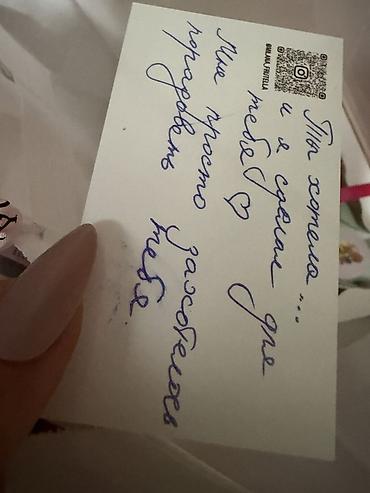 @MILANA_FRUTELLA
Ты хотела...
и я сделал для
тебя ♡
Мне просто захотелось
порадовать тебя